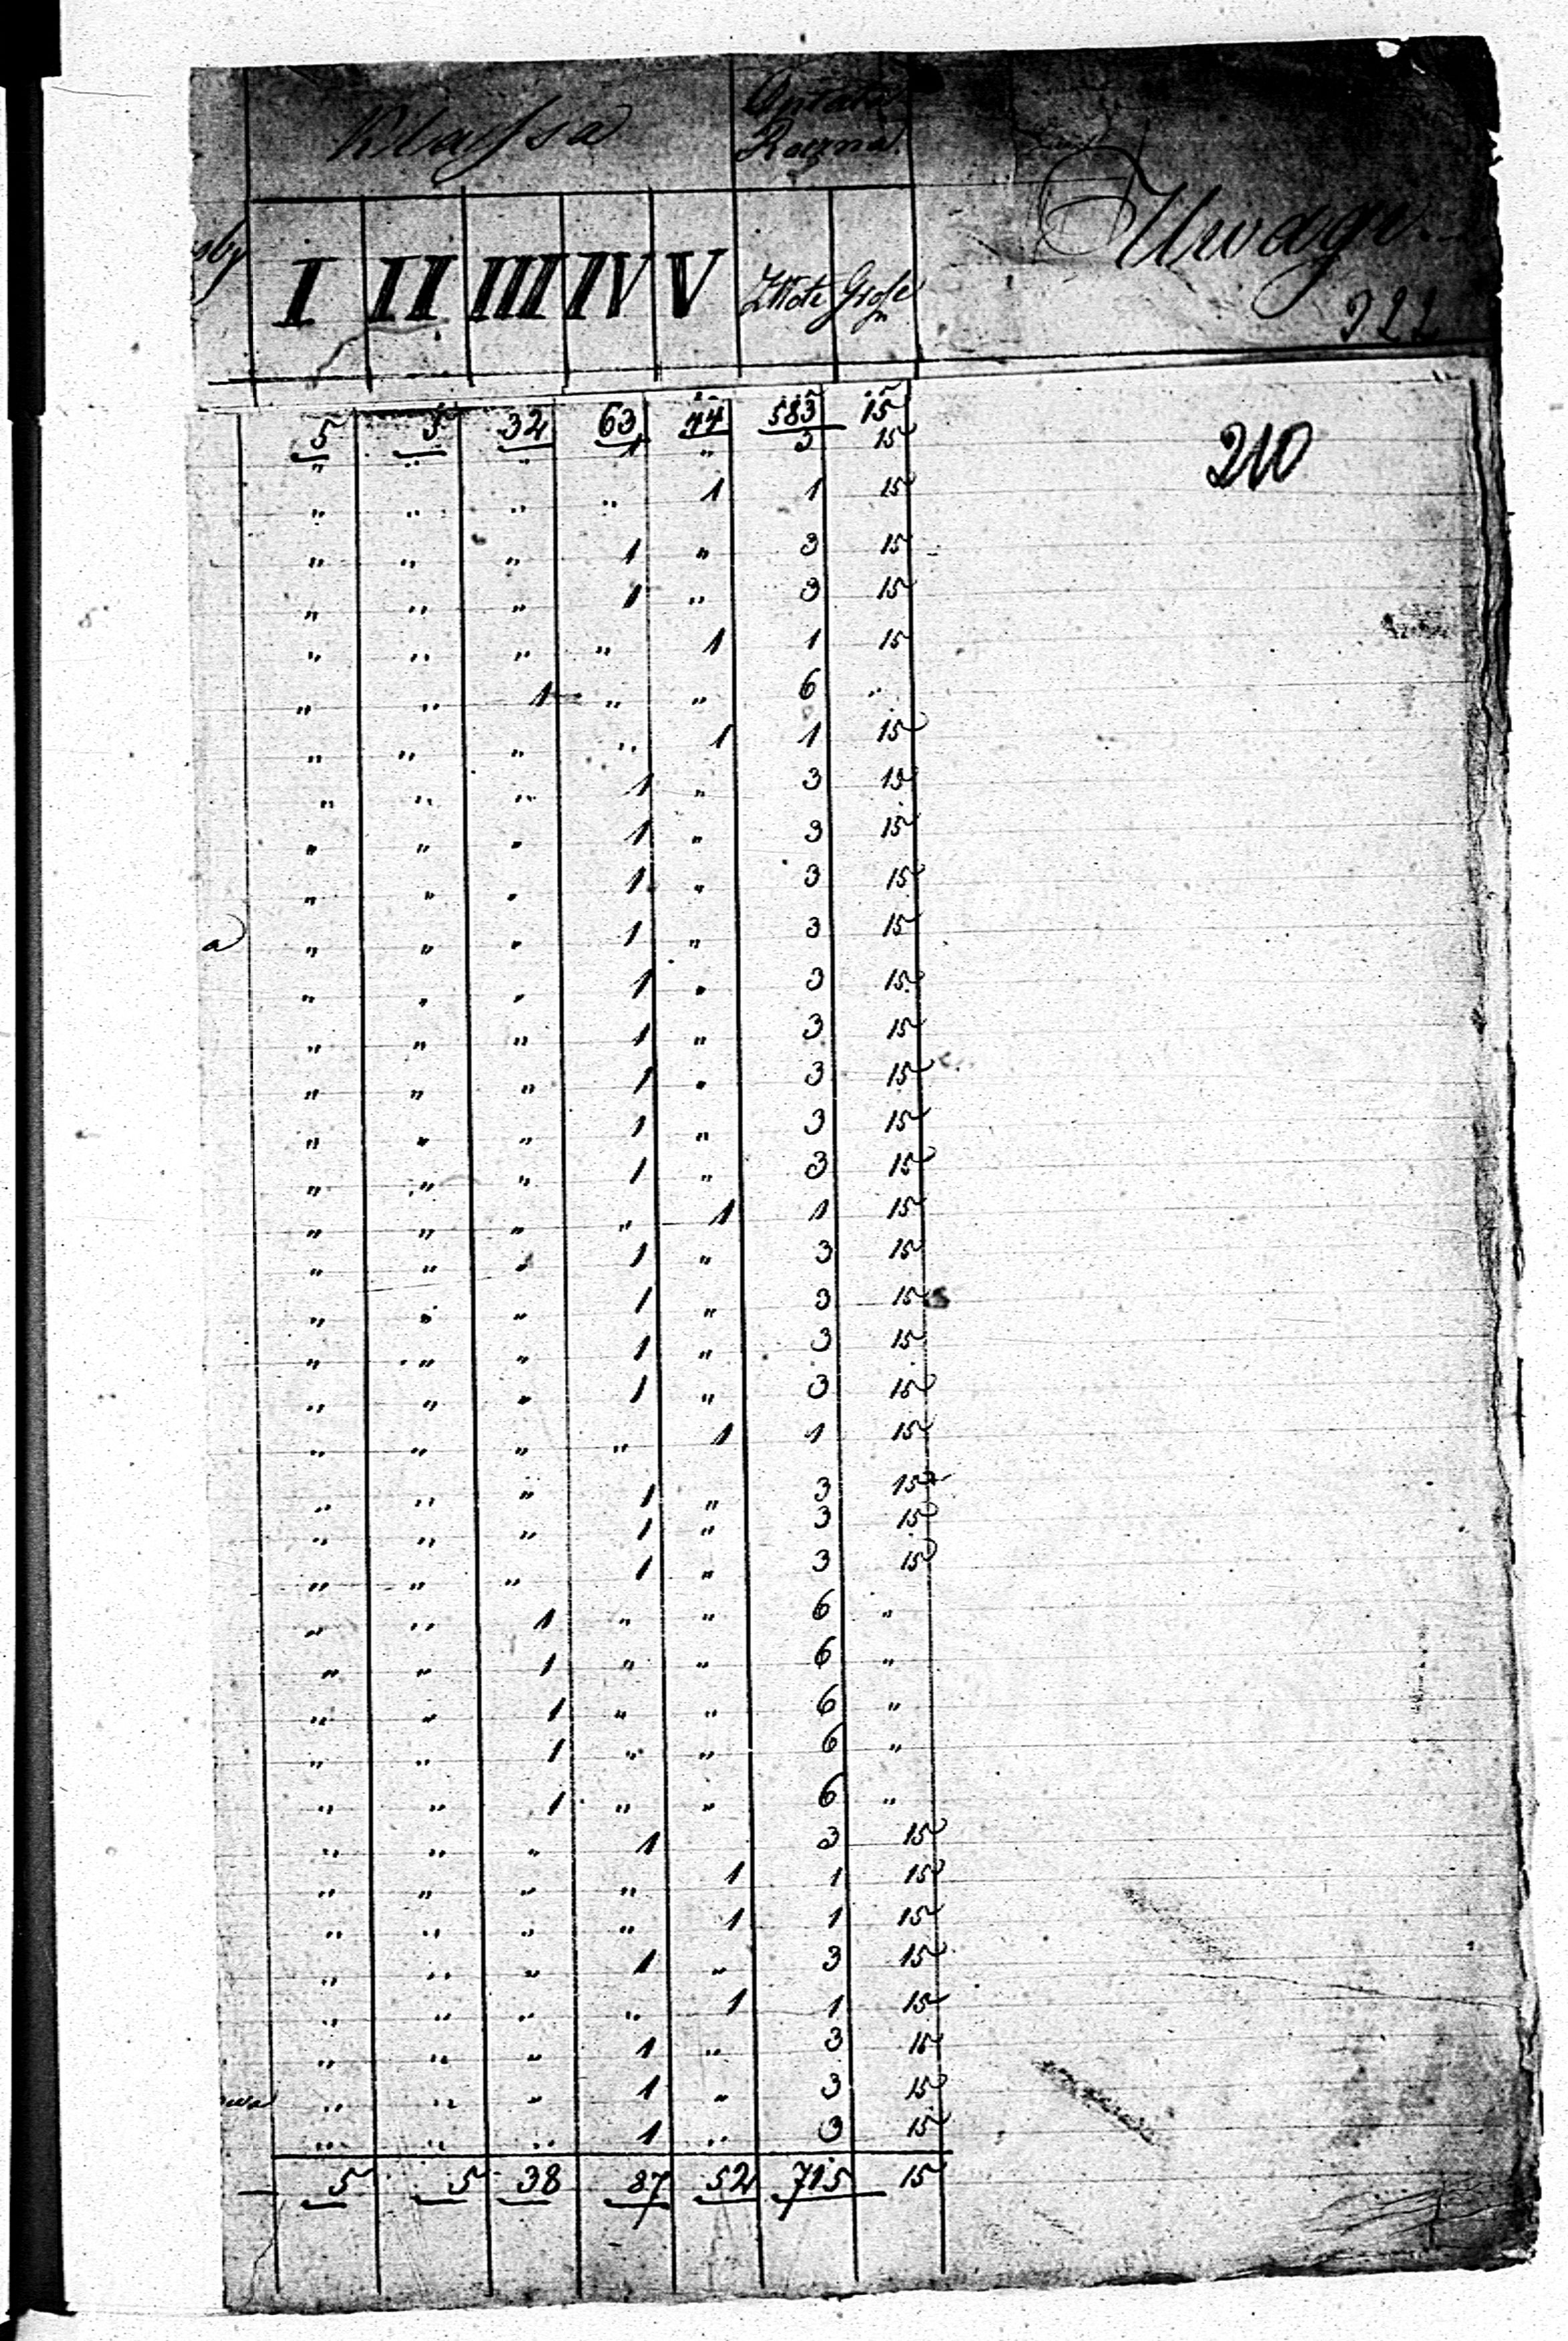 Klassa Opłata
Roczna
Uwagi
I II III IV V Złote Grosze
322
5 5 32 63 44 583 15
210
" " " 1 " 3 15
" " " " 1 1 15
" " " 1 " 3 15
" " " 1 " 3 15
" " " " 1 1 15
" " 1 " " 6 "
" " " " 1 1 15
" " " 1 " 3 15
" " " 1 " 3 15
" " " 1 " 3 15
a " " " 1 " 3 15
" " " 1 " 3 15
" " " 1 " 3 15
" " " 1 " 3 15
" " " 1 " 3 15
" " " 1 " 3 15
" " " " 1 1 15
" " " 1 " 3 15
" " " 1 " 3 15
" " " 1 " 3 15
" " " 1 " 3 15
" " " " 1 1 15
" " " 1 " 3 15
" " " 1 " 3 15
" " " 1 " 3 15
" " 1 " " 6 "
" " 1 " " 6 "
" " 1 " " 6 "
" " 1 " " 6 "
" " 1 " " 6 "
" " " 1 3 15
" " " " 1 1 15
" " " " 1 1 15
" " " 1 " 3 15
" " " " 1 1 15
" " " 1 " 3 15
" " " 1 " 3 15
" " " 1 " 3 15
5 5 38 87 52 715 15